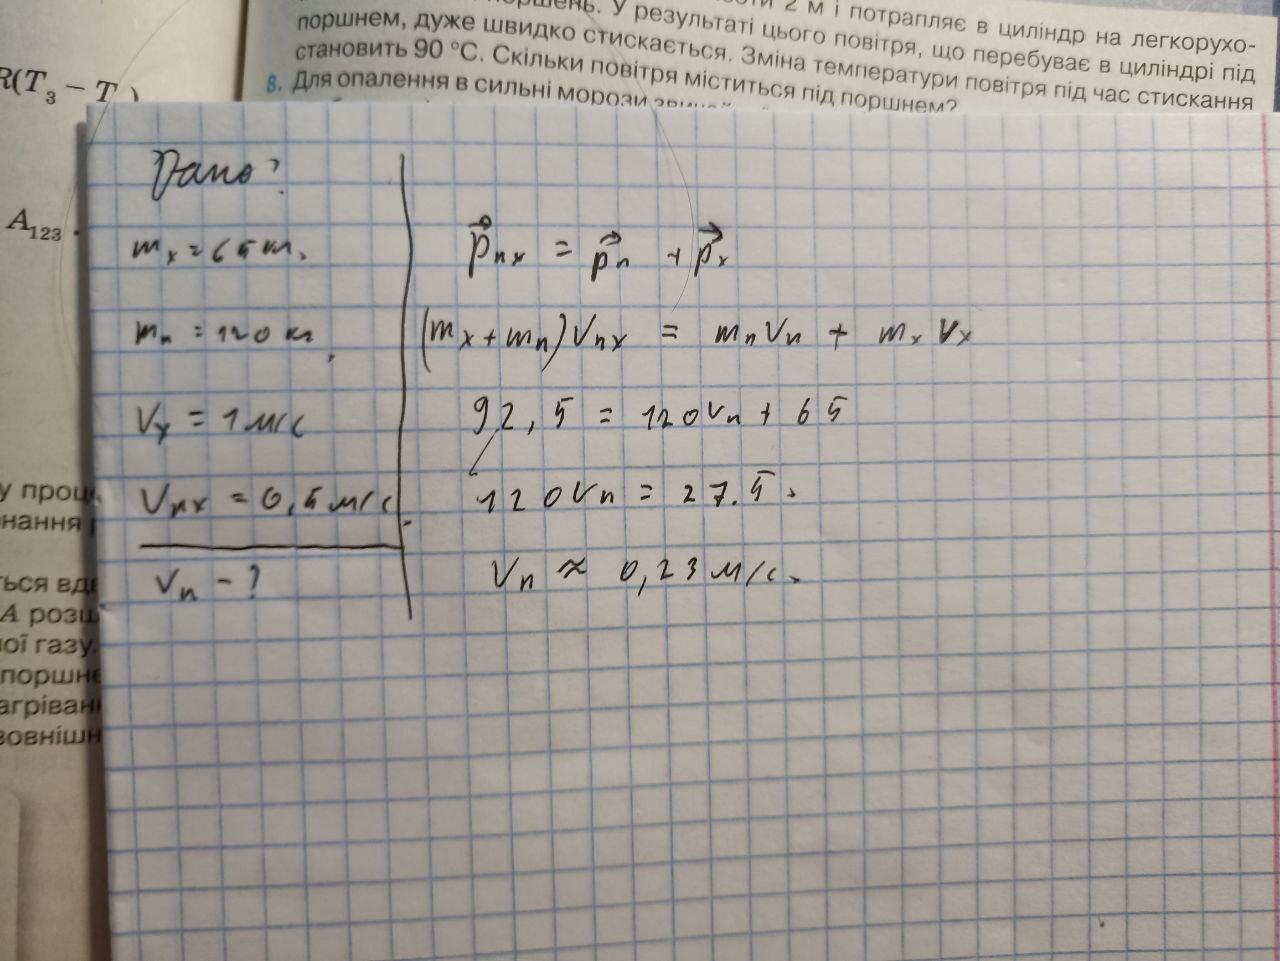 2 м і потрапляє в циліндр на легкорухо-
поршень. У результаті цього повітря, що перебуває в циліндрі під
поршнем, дуже швидко стискається. Зміна температури повітря під час стискання
становить 90 °C. Скільки повітря міститься під поршнем?
8. Для опалення в сильні морози
R(T₃ − T
A₁₂₃
у
нання
ться
A
ої газу.
поршне
Дано:
mₓ = 65 кг.
mₙ = 120 кг.
Vₓ = 1 м/с
Vₙₓ = 0,5 м/с.
Vₙ - ?
p⃗ₙₓ = p⃗ₙ + p⃗ₓ
(mₓ + mₙ)Vₙₓ = mₙVₙ + mₓVₓ
92,5 = 120Vₙ + 65
120Vₙ = 27.5.
Vₙ ≈ 0,23 м/с.